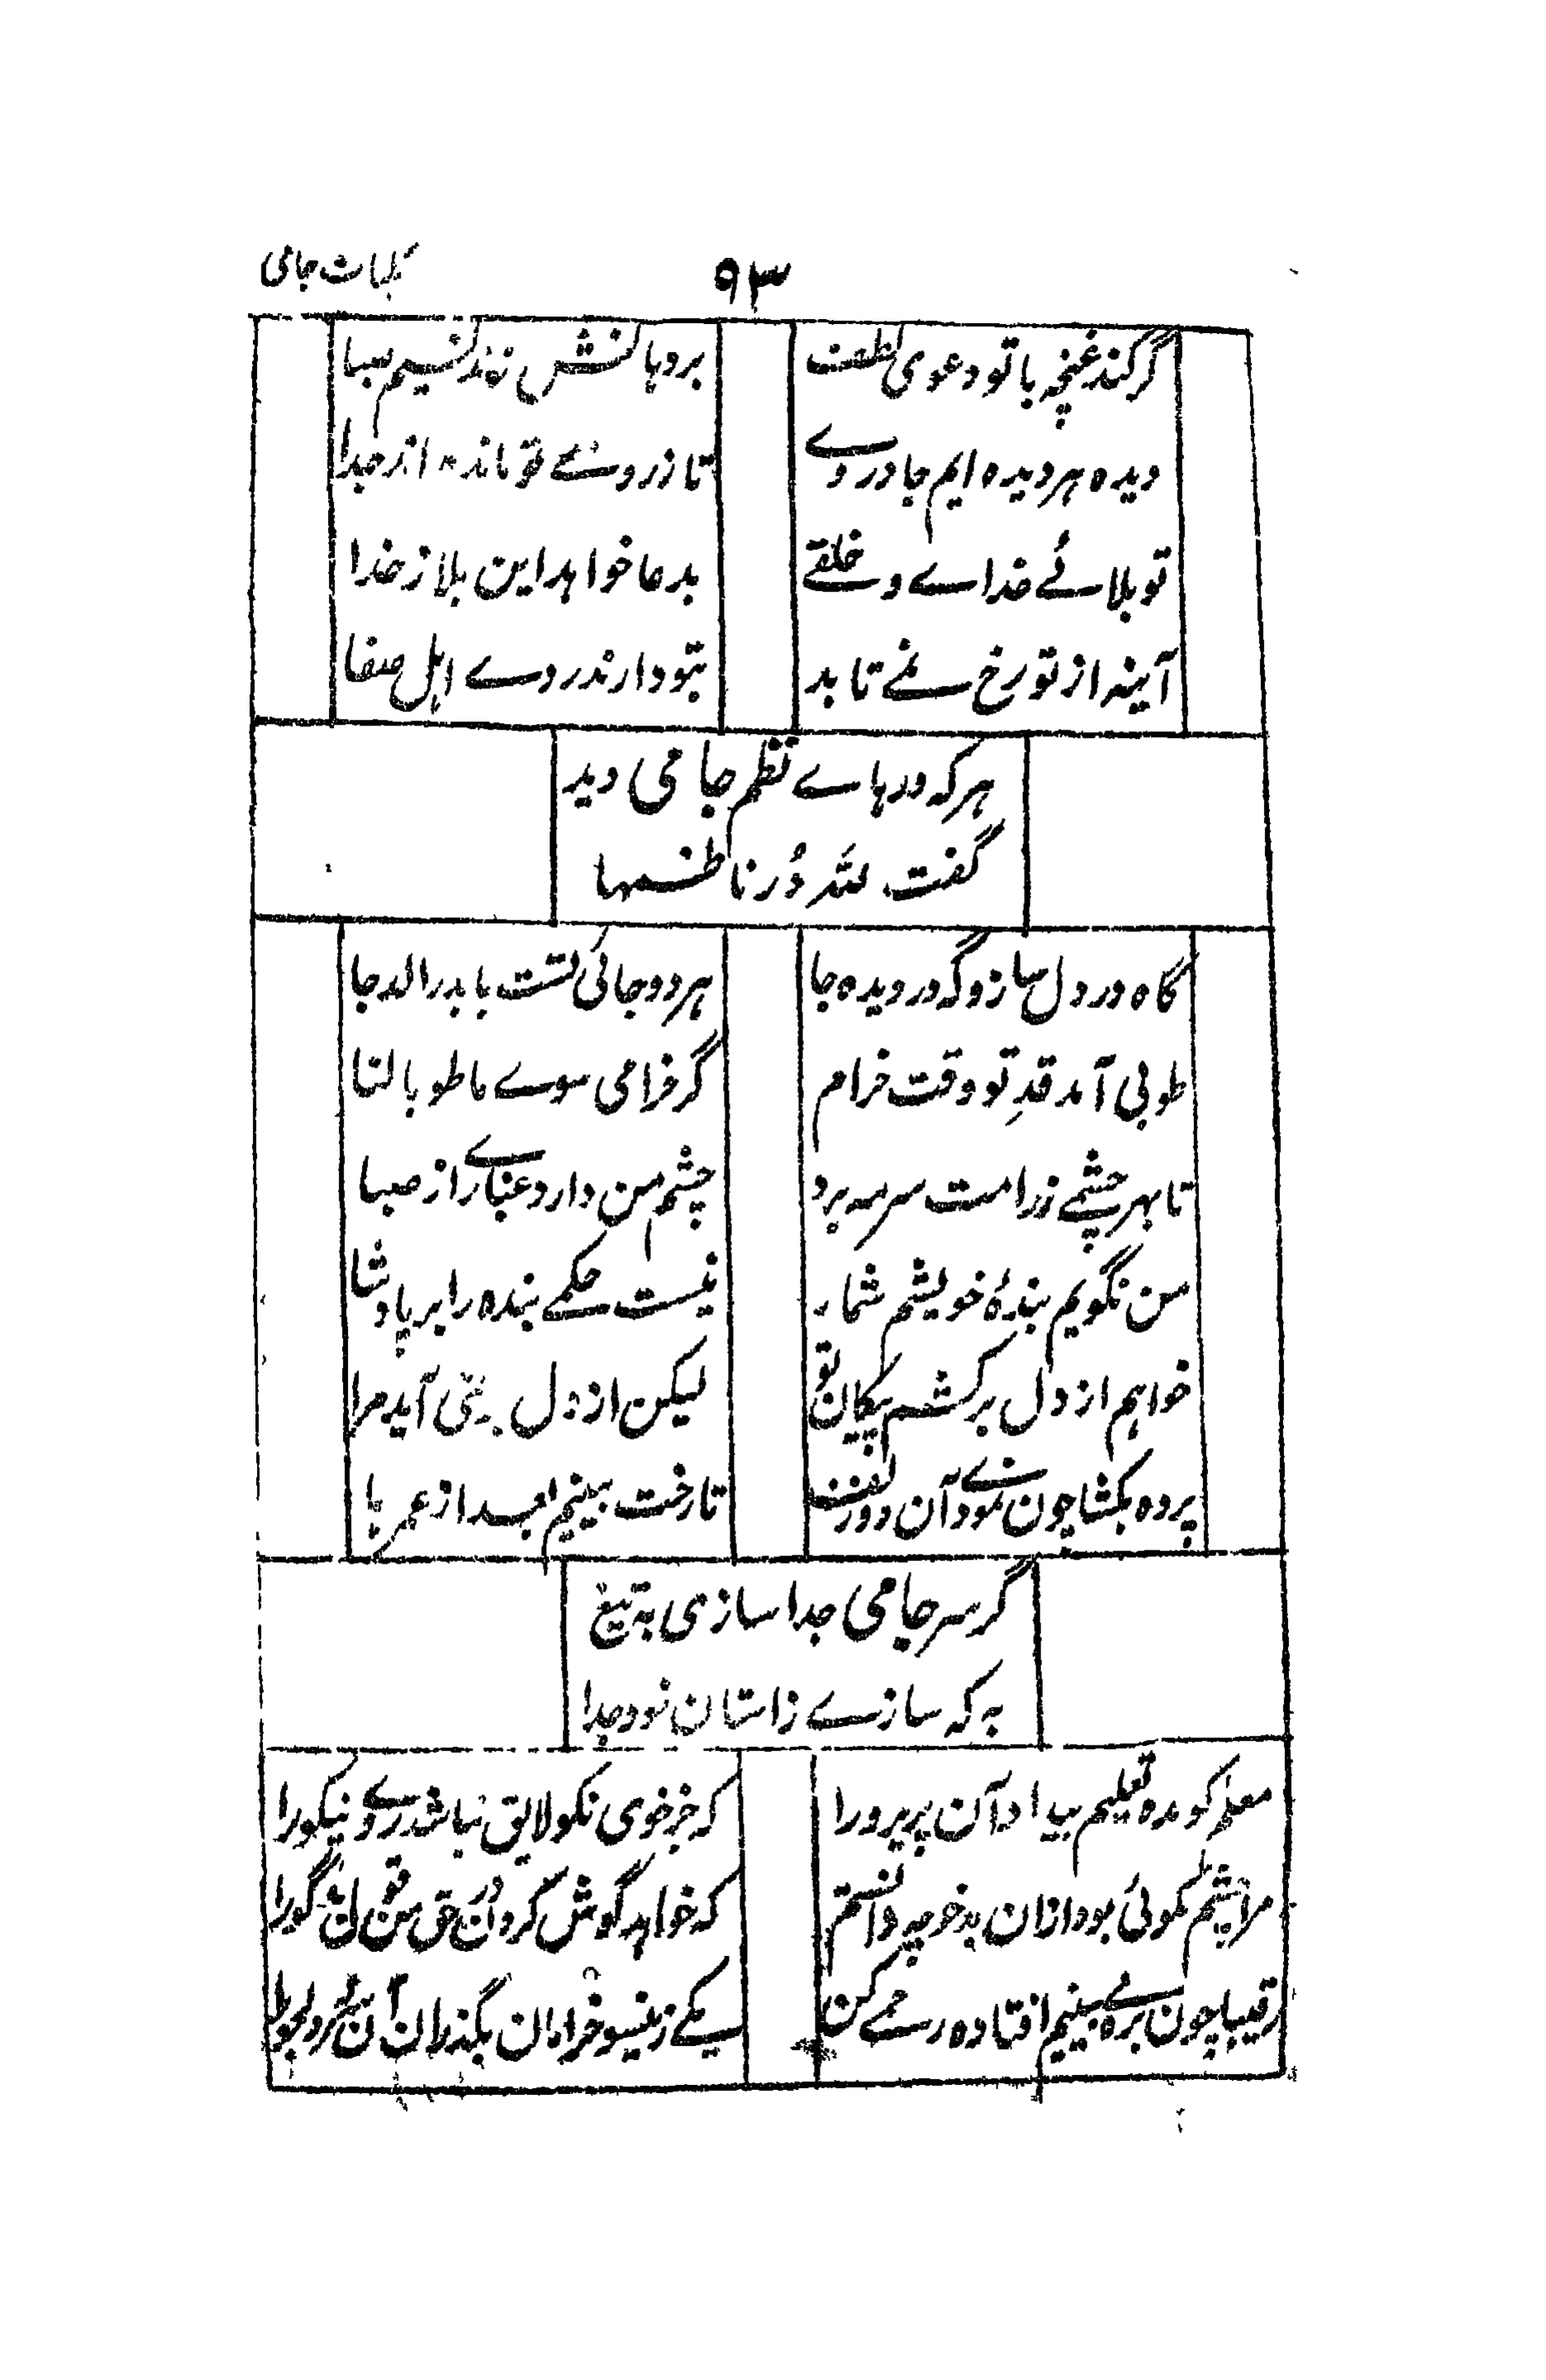 کلیات جامی
۹۳
گر کند غنچه با تو دعوی لطف
بر دهانش زند نسیم صبا
دیده هر دیده ایم جا در وے
تا ز روے تو مانده اند جدا
تو بلائے خداے و خلقے
بدعا خواهد این بلا ز خدا
آینه از تو رخ نمے تابد
بتو دارند روے اهل صفا
هر که درهاے نظم جامی دید
گفت لله دُر ناظمها
گاه در دل ساز و گه در دیده جا
هر دو جائی تست یا بدر الدجا
طوبی آمد قدِ تو وقت خرام
گر خرامی سوے ما طوبا لنا
تا بهر چشمے ز راهت سرمه برد
چشم من دارد غبارے از صبا
من نگویم بندۀ خویشم شمار
نیست حکمے بنده را بر پادشا
خواهم از دل برکشم پیکان تو
لیکن از دل بر نمی آید مرا
پرده بکشا چون نمودے آن دو زلف
تا رخت بینیم بعد از عمرها
گر سر جامی جدا سازی به تیغ
به که سازے ز استان خود جدا
معلم کو مده تعلیم بیداد آن پریرو را
که جز خوی نکو لایق نباشد روے نیکو را
مرا چشم نکوئی بود ازان بدخو چه دانستم
که خواهد گوش کرد در حق من قول
رقیبا چون برے بینیم افتاده رحمے کن
یکے زینسو خرامان بگذران آن